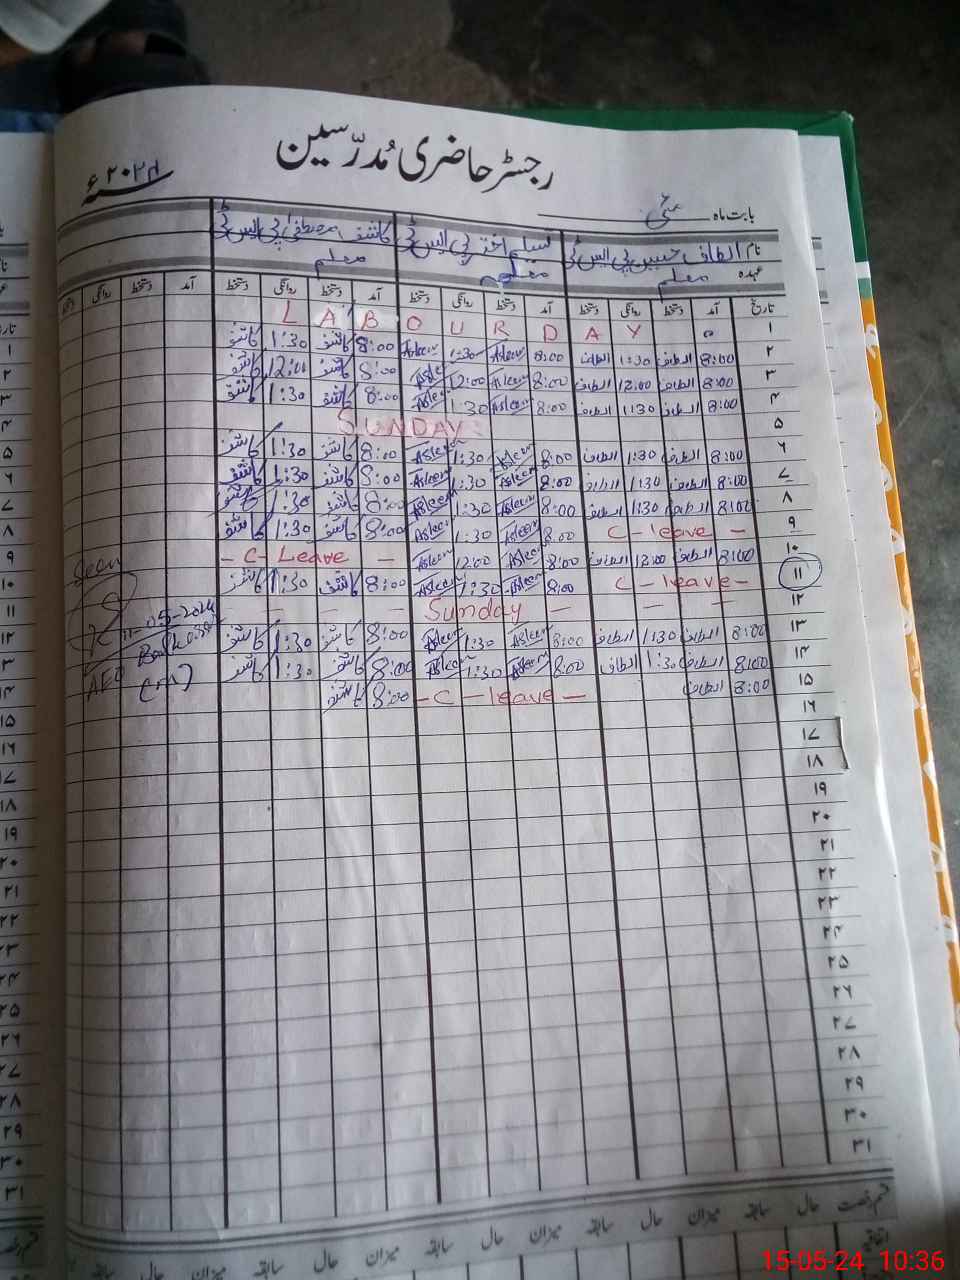 رجسٹر حاضری مُدرّسین
سنہ ۲۰۲۴ء
بابت ماہ مئی
نام الطاف حسین پی ایس ٹی اختر پی ایس ٹی کاشف مصطفیٰ پی ایس ٹی
عہدہ معلم معلم معلم
تاریخ آمد دستخط روانگی دستخط آمد دستخط روانگی دستخط آمد دستخط روانگی دستخط آمد دستخط روانگی دستخط
۱ LABOUR DAY
۲ 8:00 الطاف 1:30 الطاف 8:00 Asleem 1:30 Asleem 8:00 کاشف 1:30 کاشف
۳ 8:00 الطاف 12:00 الطاف 8:00 Asleem 12:00 Asleem 8:00 کاشف 12:00 کاشف
۴ 8:00 الطاف 1:30 الطاف 8:00 Asleem 1:30 Asleem 8:00 کاشف 1:30 کاشف
۵ SUNDAY
۶ 8:00 الطاف 1:30 الطاف 8:00 Asleem 1:30 Asleem 8:00 کاشف 1:30 کاشف
۷ 8:00 الطاف 1:30 الطاف 8:00 Asleem 1:30 Asleem 8:00 کاشف 1:30 کاشف
۸ 8:00 الطاف 1:30 الطاف 8:00 Asleem 1:30 Asleem 8:00 کاشف 1:30 کاشف
۹ C-leave - 8:00 Asleem 1:30 Asleem 8:00 کاشف 1:30 کاشف
۱۰ 8:00 الطاف 12:00 الطاف 8:00 Asleem 12:00 Asleem - C-Leave -
۱۱ C-leave- 8:00 Asleem 1:30 Asleem 8:00 کاشف 1:30 کاشف
۱۲ - - - Sunday - - - -
۱۳ 8:00 الطاف 1:30 الطاف 8:00 Asleem 1:30 Asleem 8:00 کاشف 1:30 کاشف
۱۴ 8:00 الطاف 1:30 الطاف 8:00 Asleem 1:30 Asleem 8:00 کاشف 1:30 کاشف
۱۵ 8:00 الطاف -C-leave- 8:00 کاشف
Seen
11-05-2024
AEO
(M)
۱۶
۱۷
۱۸
۱۹
۲۰
۲۱
۲۲
۲۳
۲۴
۲۵
۲۶
۲۷
۲۸
۲۹
۳۰
۳۱
قسم رخصت حال سابقہ میزان حال سابقہ میزان حال سابقہ میزان حال سابقہ
اتفاقیہ
15-05-24 10:36